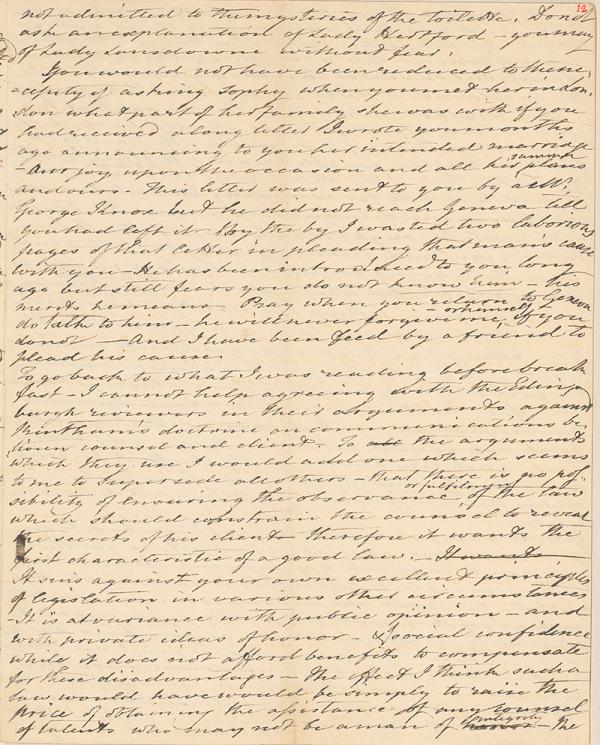 12
not admitted to the mysteries of the toilette. Do not
ask an explanation of Lady Hertford – you may
of Lady Lansdowne without fear.
You would not have been reduced to the ne-
=cessity of asking Sophy when you met her in Lon-
don what part of her family she was with if you
had received a long letter I wrote you months
ago announcing to you her intended marriage
– our joy upon the occasion and all her summer plans
and ours – This letter was sent to you by a Mr.
George Knox but he did not reach Geneva till
you had left it – By the by I wasted two laborious
pages of that letter in pleading that mans cause
with you – He has been introduced to you long
ago but still fears you do not know him – his
merits he means – Pray when you return to Geneva
do talk to him – he will never forgive me – or himself if you
do not – And I have been feed by a friend to
plead his cause.
To go back to what I was reading before break
fast – I cannot help agreeing with the Edin
burgh reviewers in their arguments against
Benthams doctrine on communications be
tween counsel and client. To all the arguments
which they use I would add one which seems
to me to supersede all others – that there is no pos-
sibility of ensuring the observance, or fulfilment of the law
which should constrain the counsel to reveal
the secrets of his client – therefore it wants the
first characteristic of a good law. – It wants
It sins against your own excellent principles
of legislation in various other circumstances
It is at variance with public opinion – and
with private ideas of honor – & social confidence
while it does not afford benefits to compensate
for these disadvantages – The effect I think such a
law would have would be simply to raise the
price of obtaining the assistance of any counsel
of talents who may not be a man of honor integrity – The